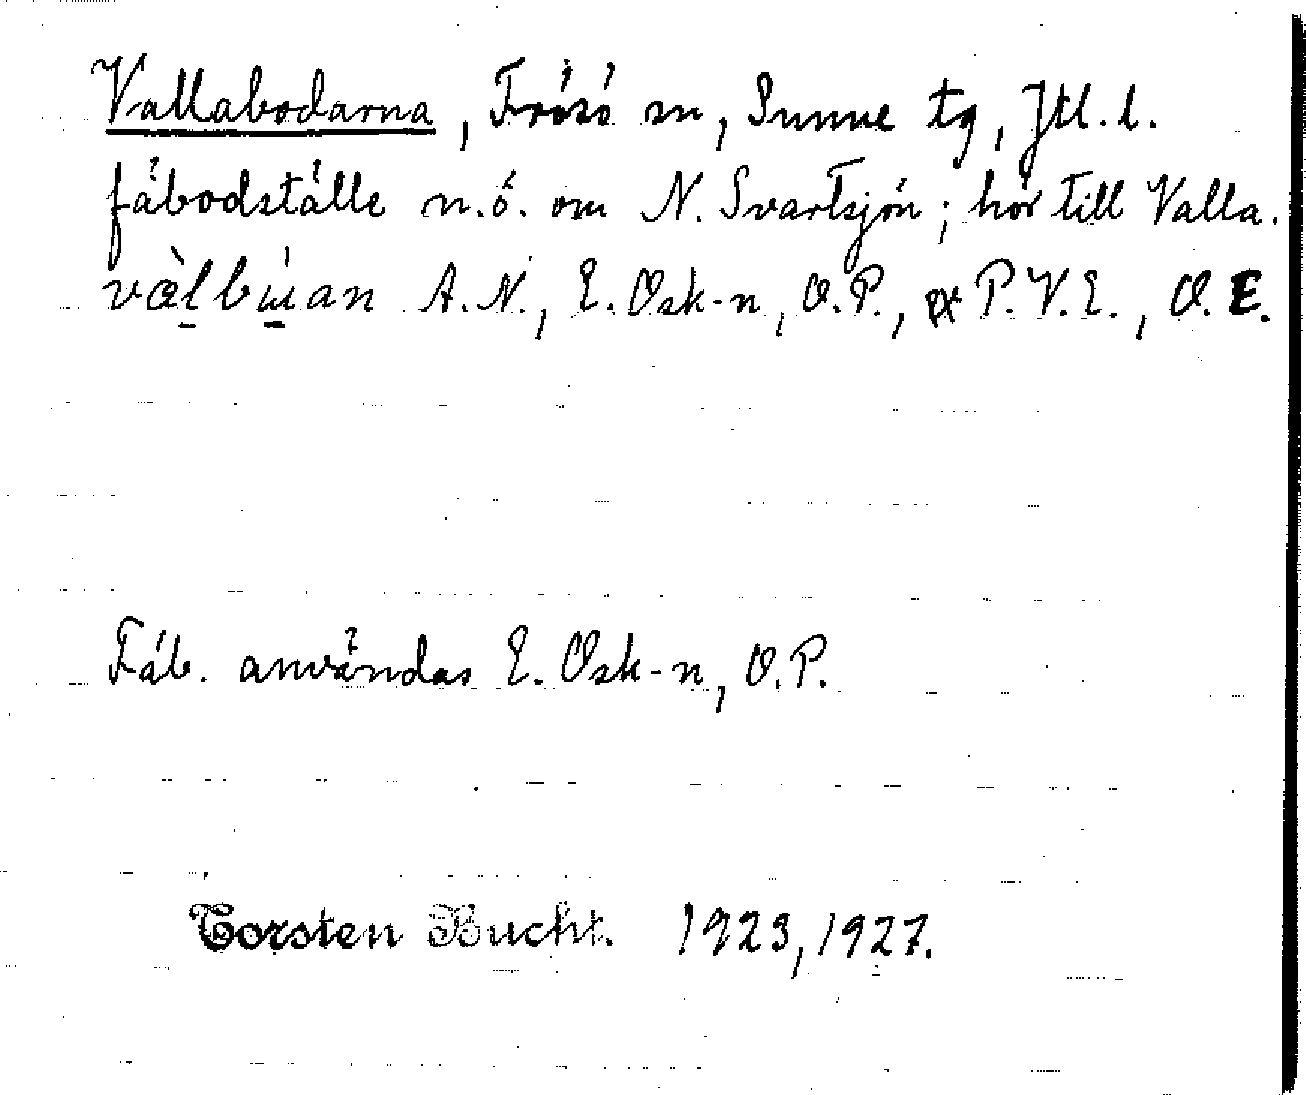 Vallabodarna, Frösö sn, Sunne tg, Jtl. l.
fäbodställe n.ö. om N. Svartsjön; hör till Valla.
A.N., E. Osk-n, O.P., P.V.E., O.E.
Fäb. användas E. Osk-n, O.P.
Torsten Bucht. 1923, 1927.